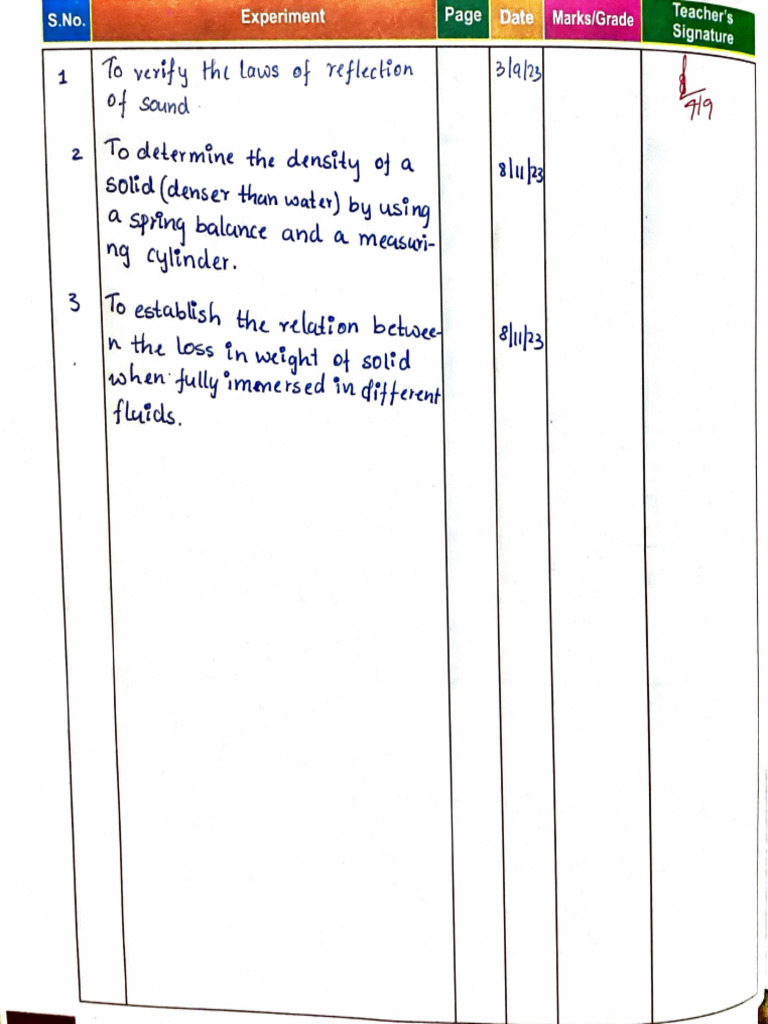 S.No. Experiment Page Date Marks/Grade Teacher's Signature
1 To verify the laws of reflection 3/9/23
of sound. 4/9
2 To determine the density of a 8/11/23
solid (denser than water) by using
a spring balance and a measuri-
ng cylinder.
3 To establish the relation betwee- 8/11/23
n the loss in weight of solid
when fully immersed in different
fluids.